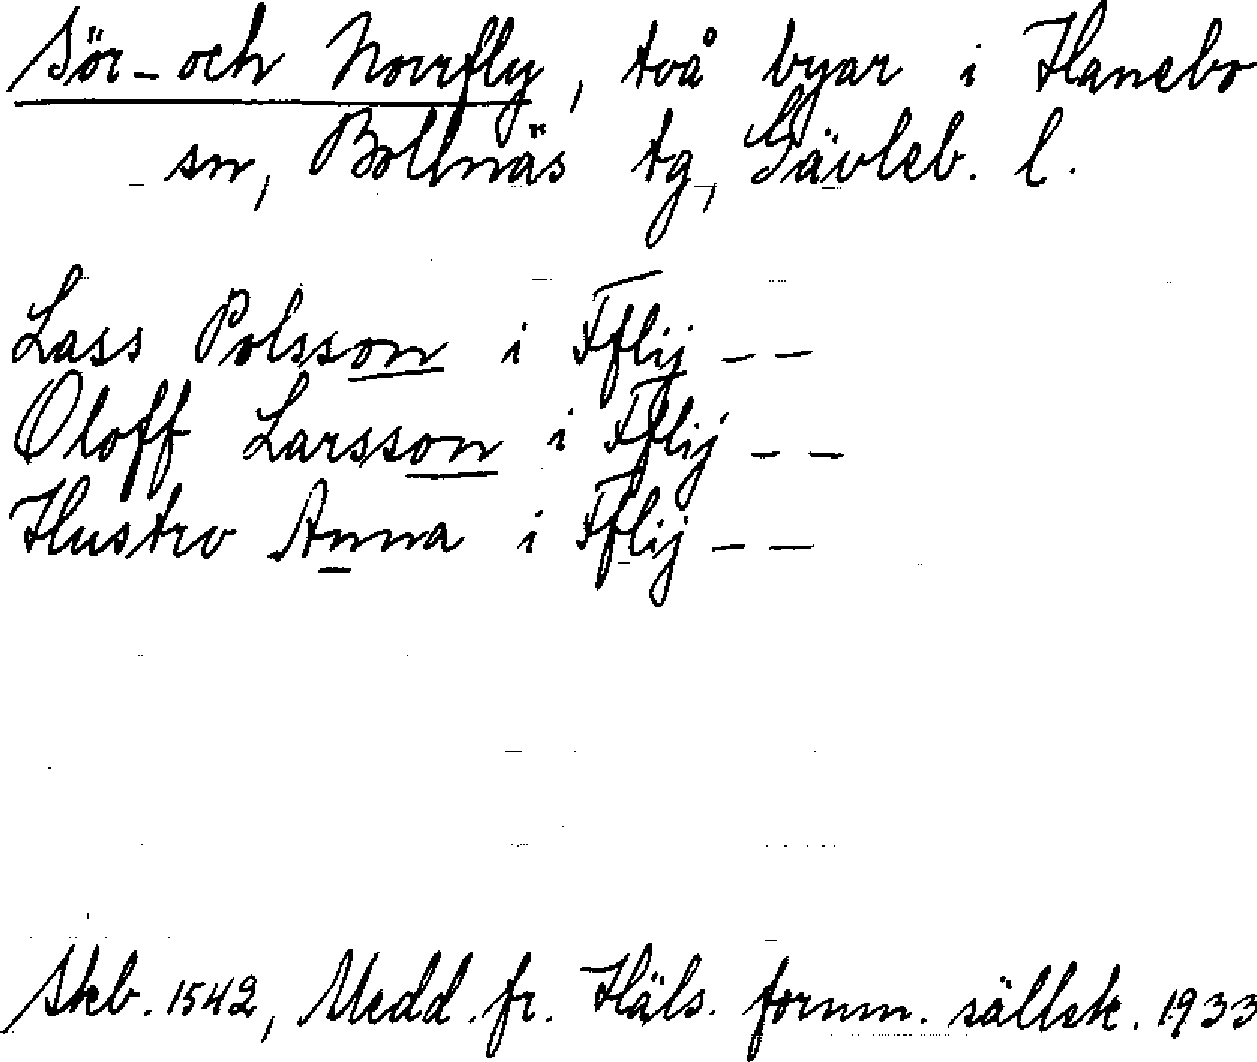 Sör- och Norrfly, två byar i Hanebo
sn, Bollnäs tg, Gävleb. l.
Lass Polsson i Fflij – –
Oloff Larsson i Fflij – –
Hustro Anna i Fflij – –
Skb. 1542, Medd. fr. Häls. fornm. sällsk. 1933